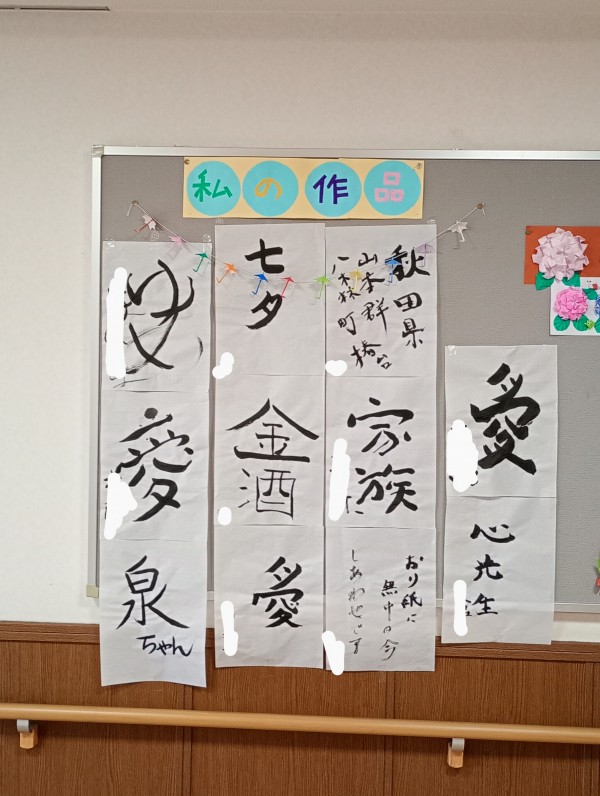 私の作品
愛
泉
ちゃん
七夕
金
酒
愛
秋田県
山本群
八森町 椿台
家族
おり紙に
無中の今
しあわせです
愛
心
先生